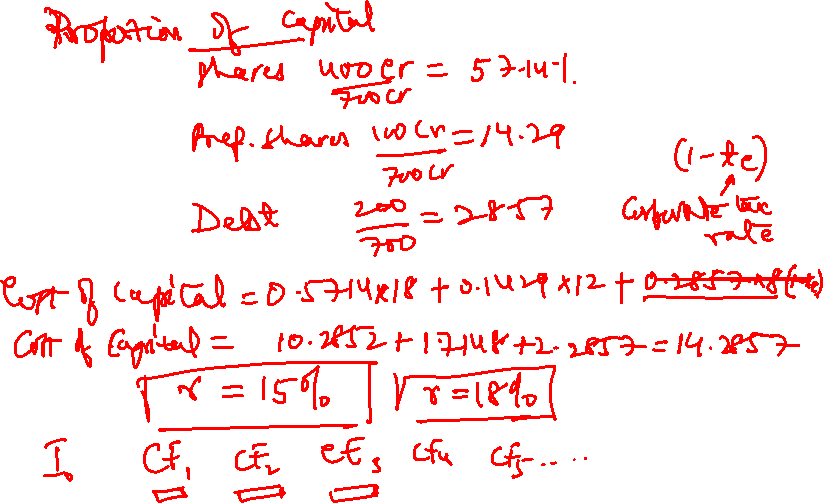 Proportion of capital
shares 400cr/700cr = 57.14%.
Pref. shares 100 Cr/700 Cr = 14.29
(1-tc)
Debt 200/700 = 28.57 Corporate tax rate
Cost of capital = 0.5714x18 + 0.1429 x12 + 0.2857x8(1-tc)
Cost of Capital = 10.2852 + 1.7148 + 2.2857 = 14.2857
r = 15% r = 18%
I0 CF1 CF2 CF3 CF4 CF5 - . . . .